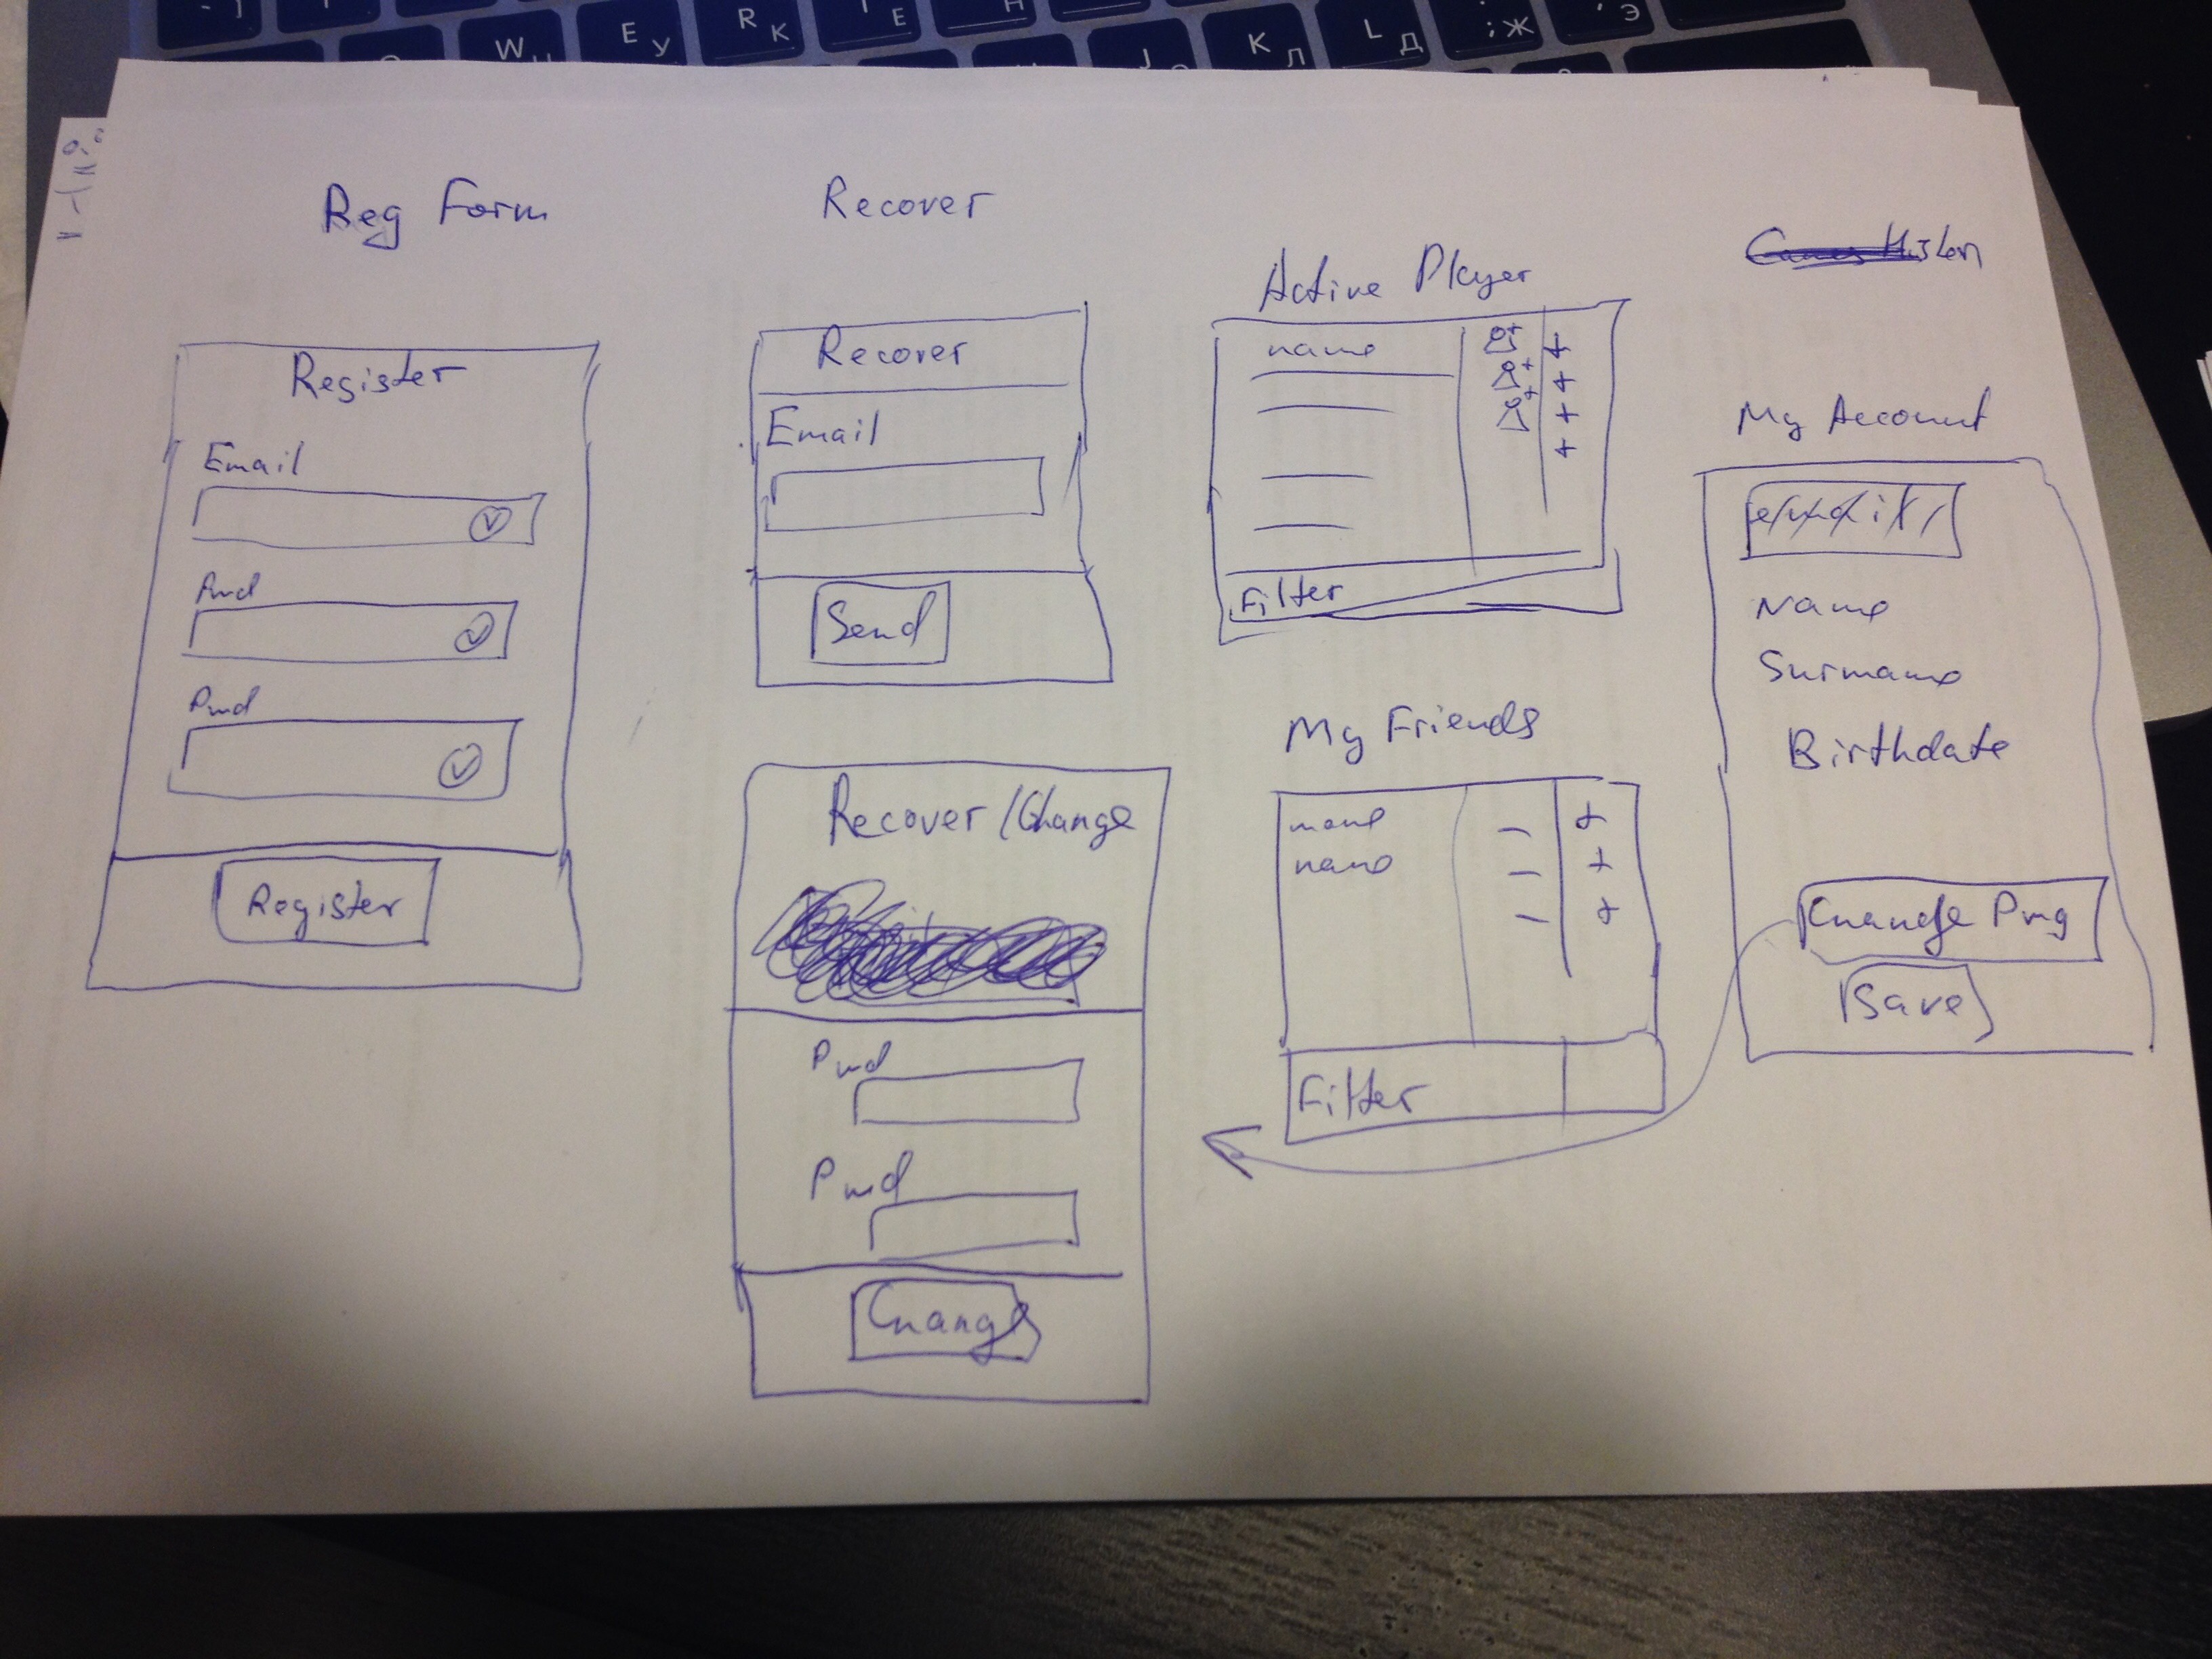 W
E У
R K
E
K Л
L Д
; Ж
Э
J
Reg Form
Register
Email
Pwd
Pwd
Register
Recover
Recover
Email
Send
Recover/Change
Pwd
Pwd
Change
Active Player
name
Filter
My Friends
name
name
Filter
My Account
email
Name
Surname
Birthdate
Change Pwg
Save